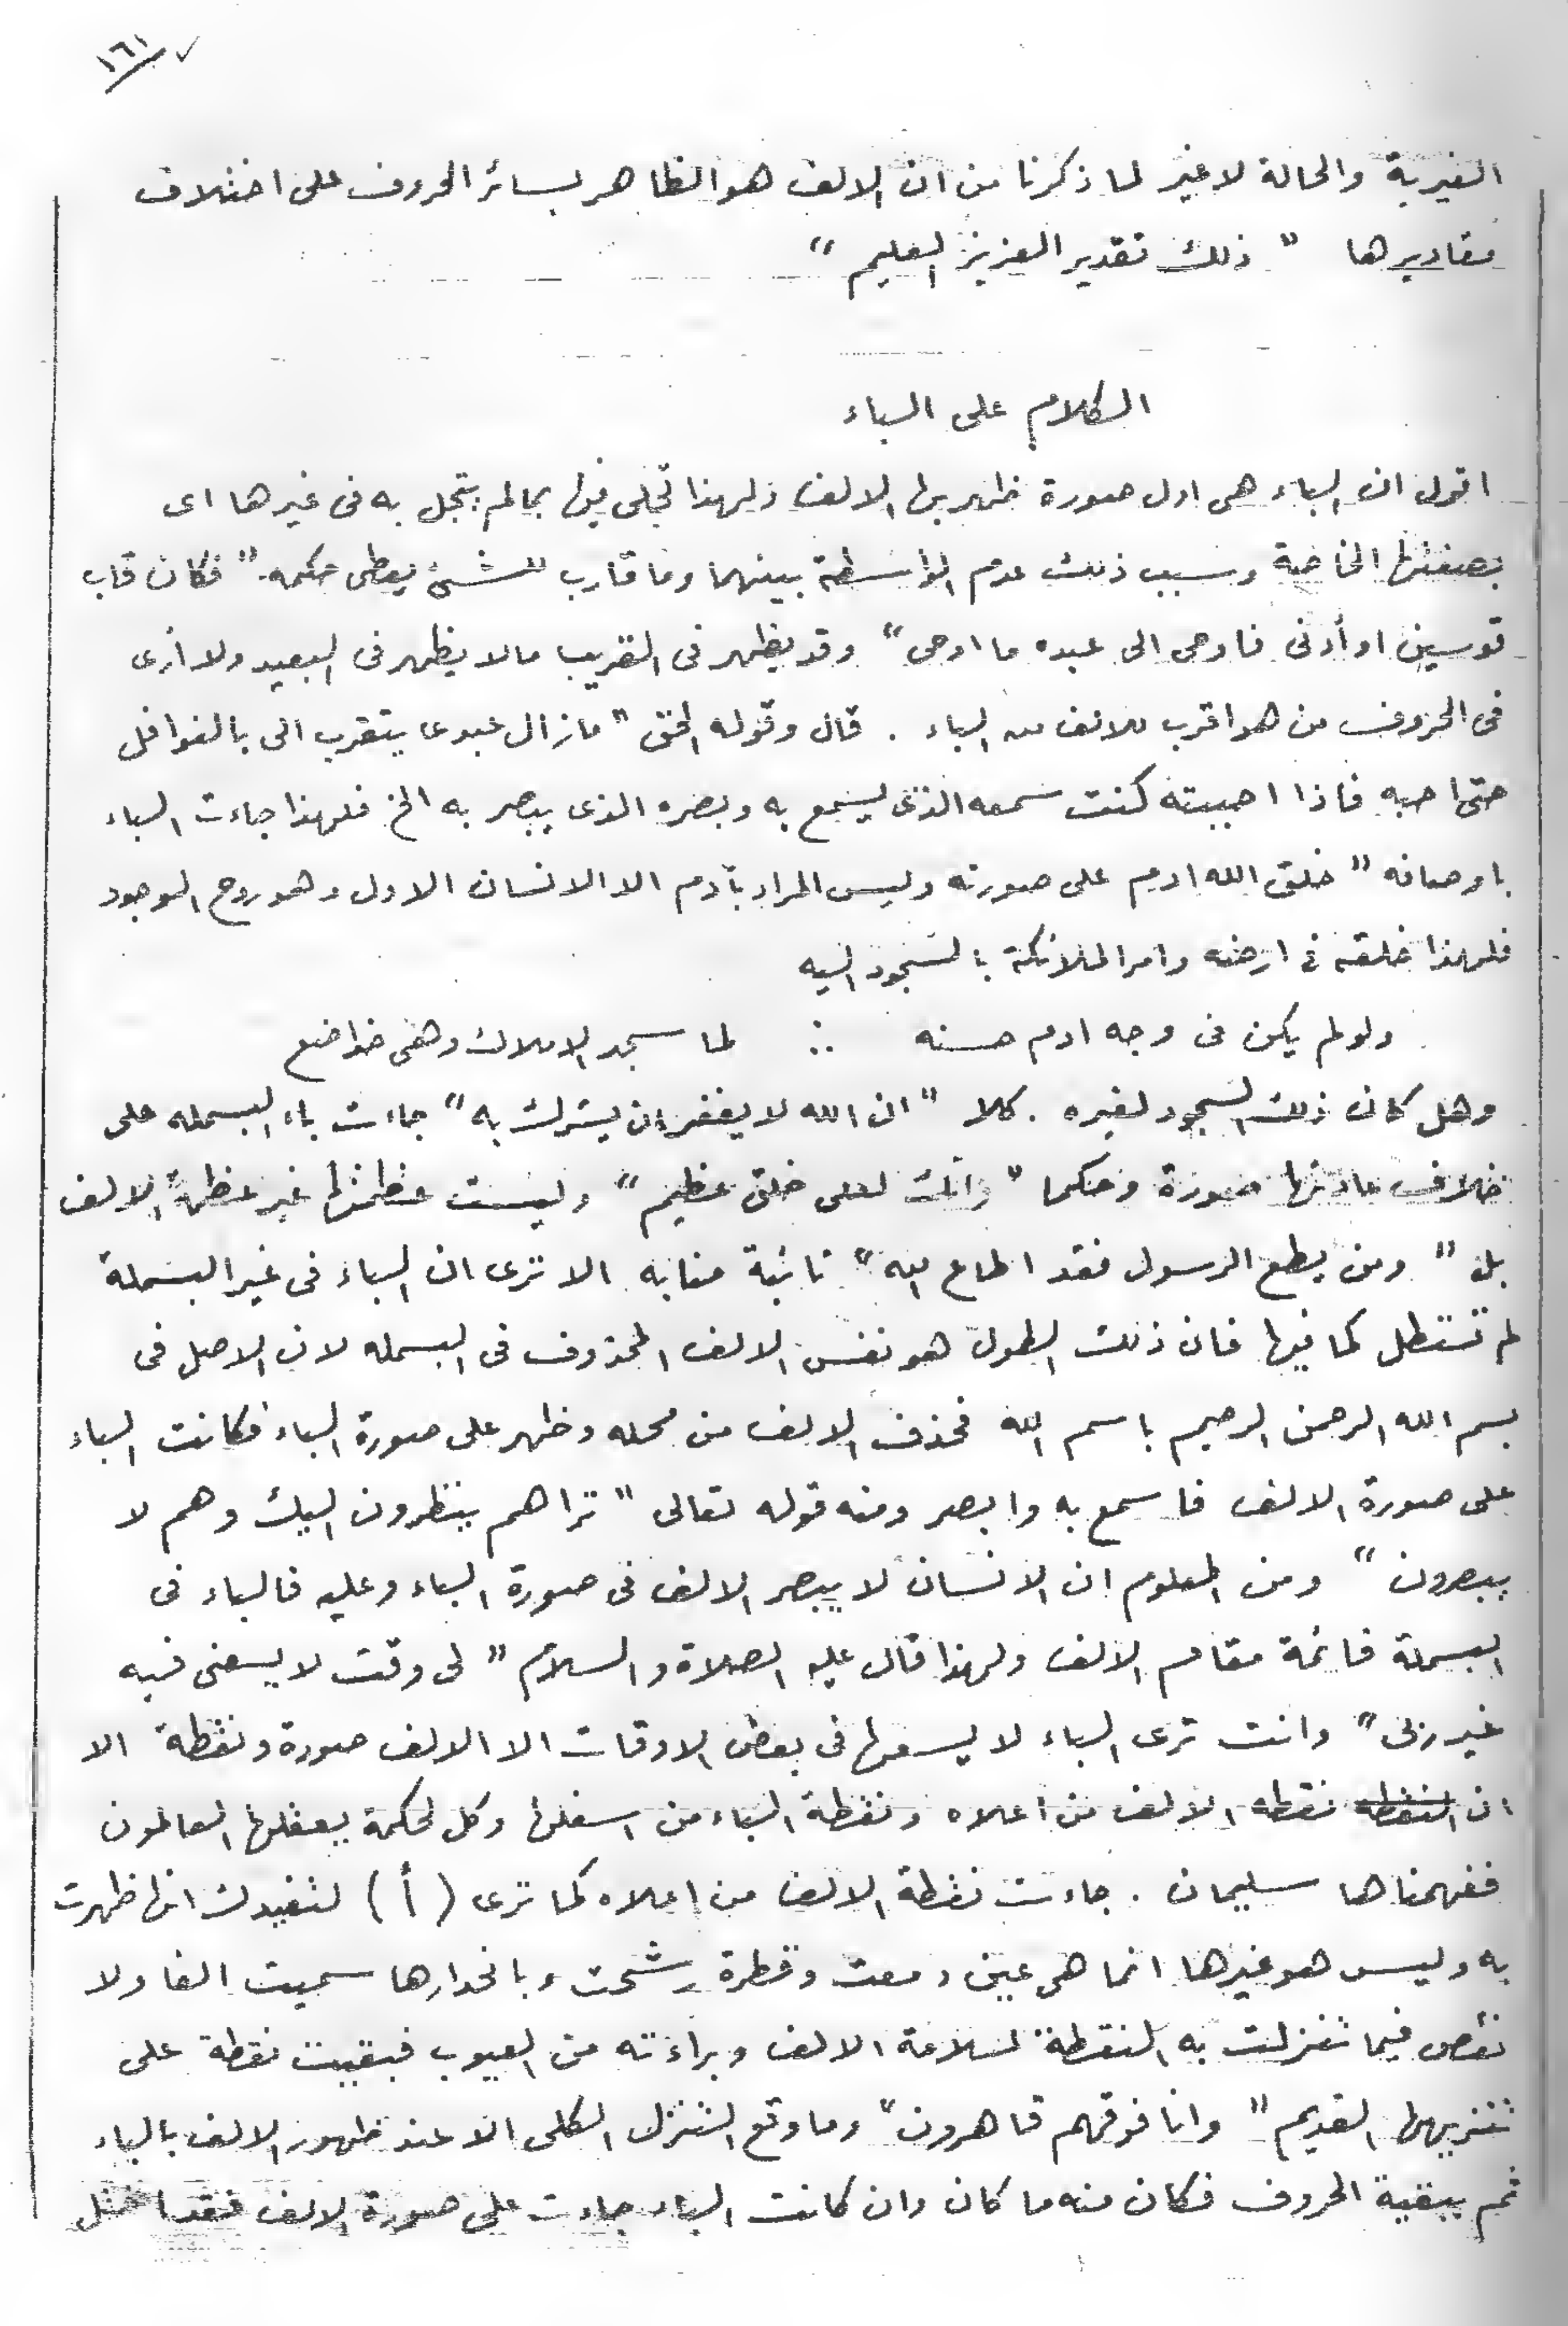 ١٦١
الغيرية والحالة لا غير لما ذكرنا من ان الالف هو الظاهر بسائر الحروف على اختلاف
مقاديرها " ذلك تقدير العزيز العليم "
الكلام على الباء
اقول ان الباء هى اول صورة ظهر بها الالف ولهذا تجلى فيها بمالم يتجل به فى غيرها اى
بصفتها الخاصة وسبب ذلك عدم الواسطة بينهما وما قارب للشئ يعطى حكمه " فكان قاب
قوسين او أدنى فاوحى الى عبده ما اوحى " وقد يظهر فى القريب مالا يظهر فى البعيد ولا أرى
فى الحروف من هو اقرب للالف من الباء . قال وقوله الحق " مازال عبدى يتقرب الى بالنوافل
حتى احبه فاذا احببته كنت سمعه الذى يسمع به وبصره الذى يبصر به الخ فلهذا جاءت الباء
باوصافه " خلق الله ادم على صورته وليس المراد بآدم الا الانسان الاول وهو روح الوجود
فلهذا خلقه فى ارضه وامر الملائكة بالسجود اليه
ولو لم يكن فى وجه ادم حسنه ∴ لما سجد الاملاك وهى خواضع
وهل كان ذلك السجود لغيره . كلا " ان الله لا يغفر ان يشرك به " جاءت باء البسمله على
خلاف عادتها صورة وحكما " وانك لعلى خلق عظيم " وليست عظمتها غير عظمة الالف
بل " ومن يطع الرسول فقد اطاع الله " نائبة منابه الا ترى ان الباء فى غير البسملة
لم تستطل كما فيها فان ذلك الطول هو نفس الالف المحذوف فى البسمله لان الاصل فى
بسم الله الرحمن الرحيم باسم الله فحذف الالف من محله وظهر على صورة الباء فكانت الباء
على صورة الالف فاسمع به وابصر ومنه قوله تعالى " تراهم ينظرون اليك وهم لا
يبصرون " ومن المعلوم ان الانسان لا يبصر الالف فى صورة الباء وعليه فالباء فى
البسملة قائمة مقام الالف ولهذا قال عليه الصلاة والسلام " لى وقت لا يسعنى فيه
غير ربى " وانت ترى الباء لا يسعها فى بعض الاوقات الا الالف صورة ونقطة الا
ان النقطه نقطه الالف من اعلاه ونقطة الباء من اسفلها وكل لحكمة يعقلها العالمون
ففهمناها سليمان . جاءت نقطة الالف من اعلاه كما ترى ( أ ) لتفيدك انها ظهرت
به وليس هو غيرها انما هى عين دمعت وقطرة رشحت وبانحدارها سميت الفا ولا
نقص فيما تنزلت به النقطة لسلامة الالف وبراءته من العيوب فبقيت نقطة على
تنزيهها القديم " وانا فوقهم قاهرون " وما وقع التنزل الكلى الا عند ظهور الالف بالباء
ثم ببقية الحروف فكان منه ما كان وان كانت الباء جاءت على صورة الالف فقد